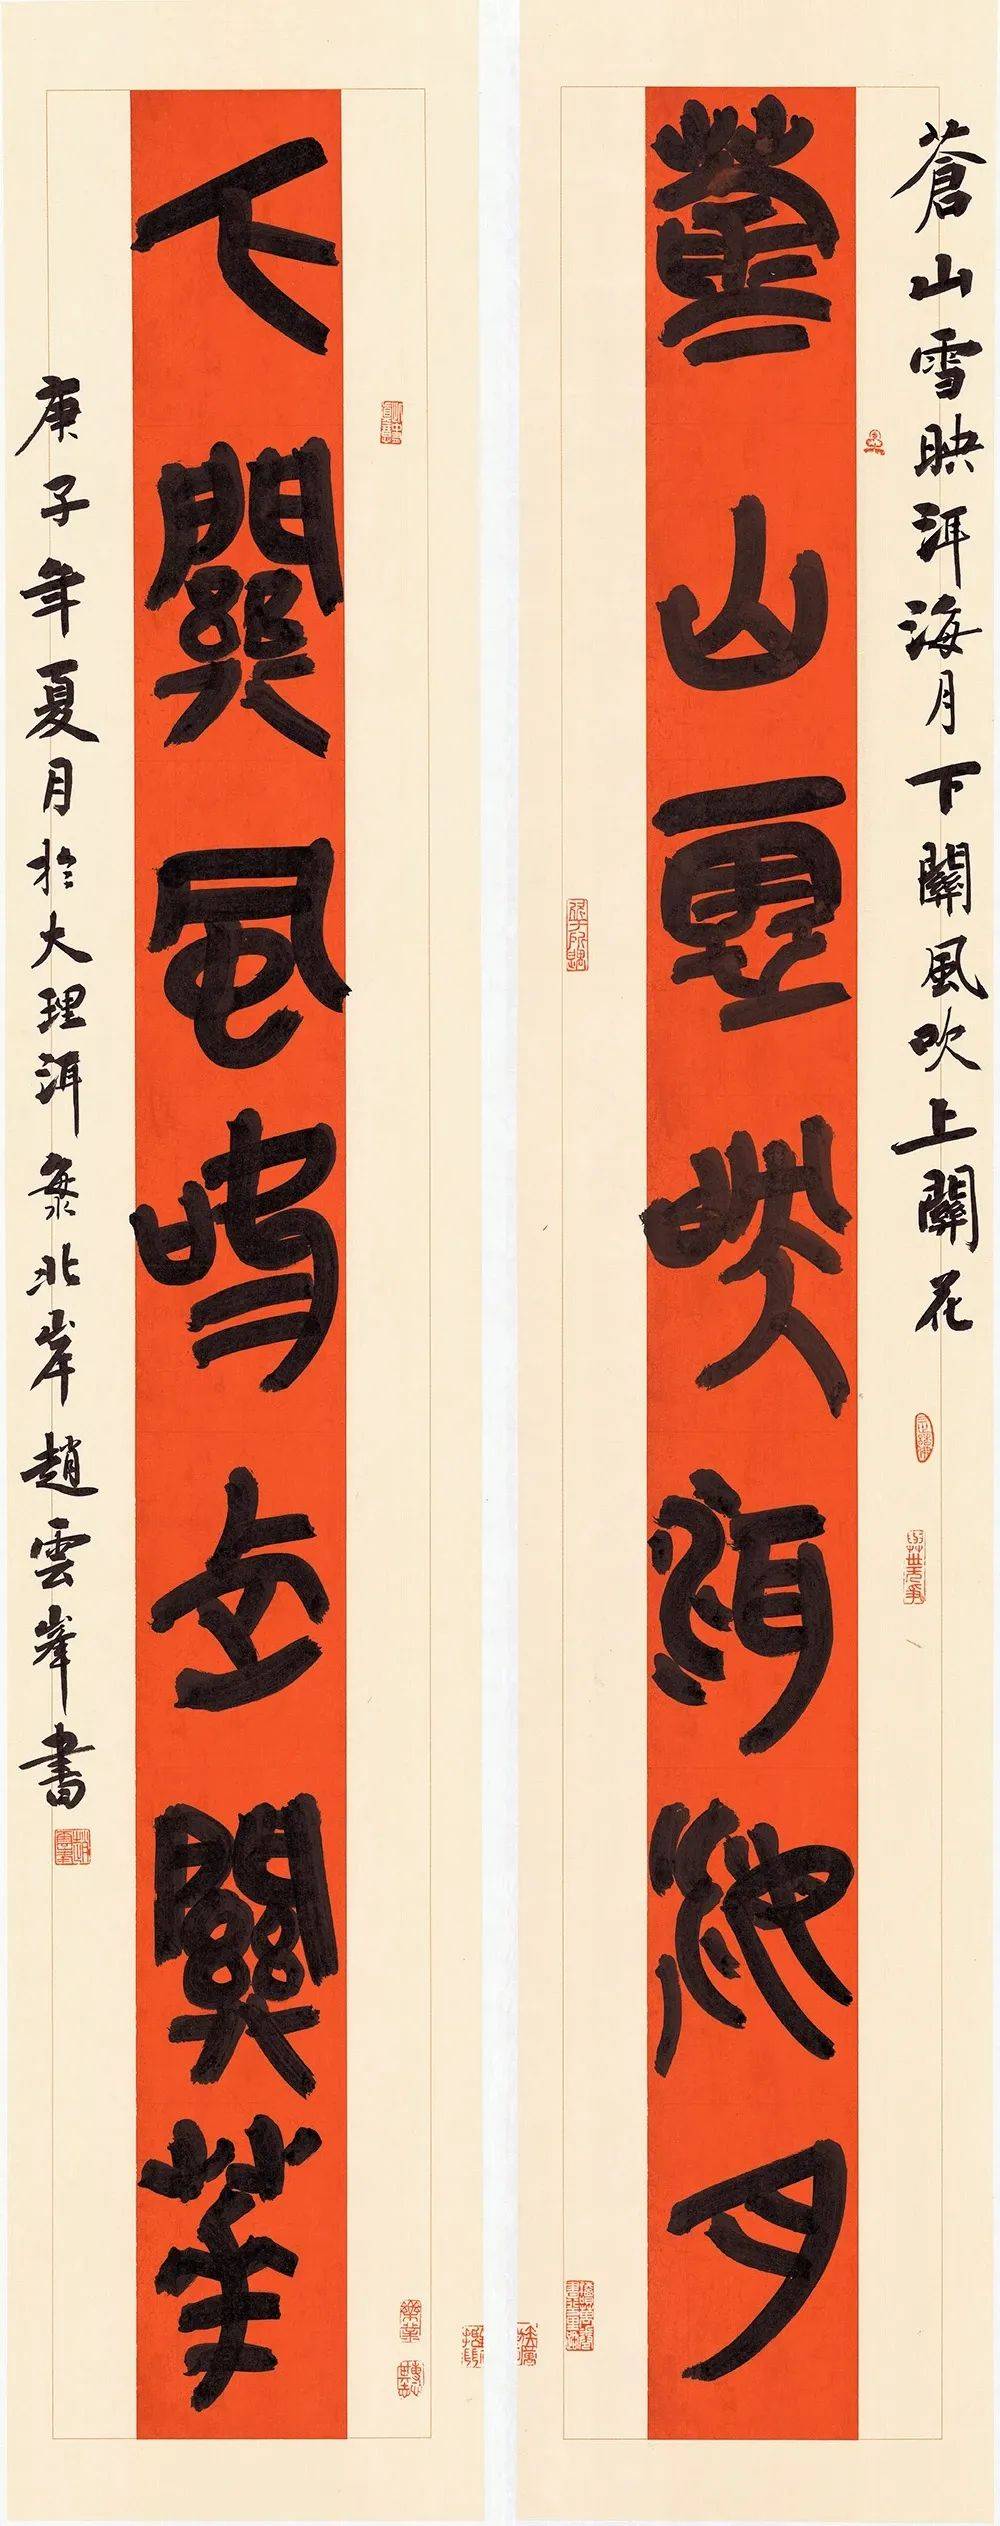 蒼山雪映洱海月下關風吹上關花
蒼山雪映洱海月
下關風吹上關花
庚子年夏月於大理洱海北岸趙雲峯書